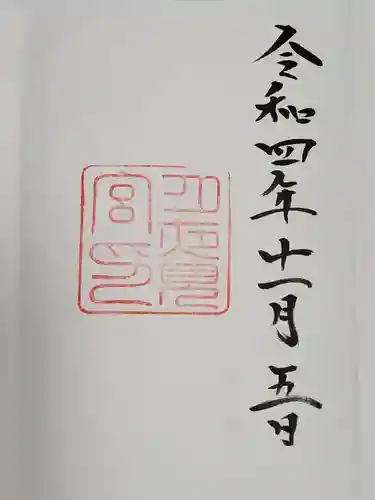 令和四年十一月五日